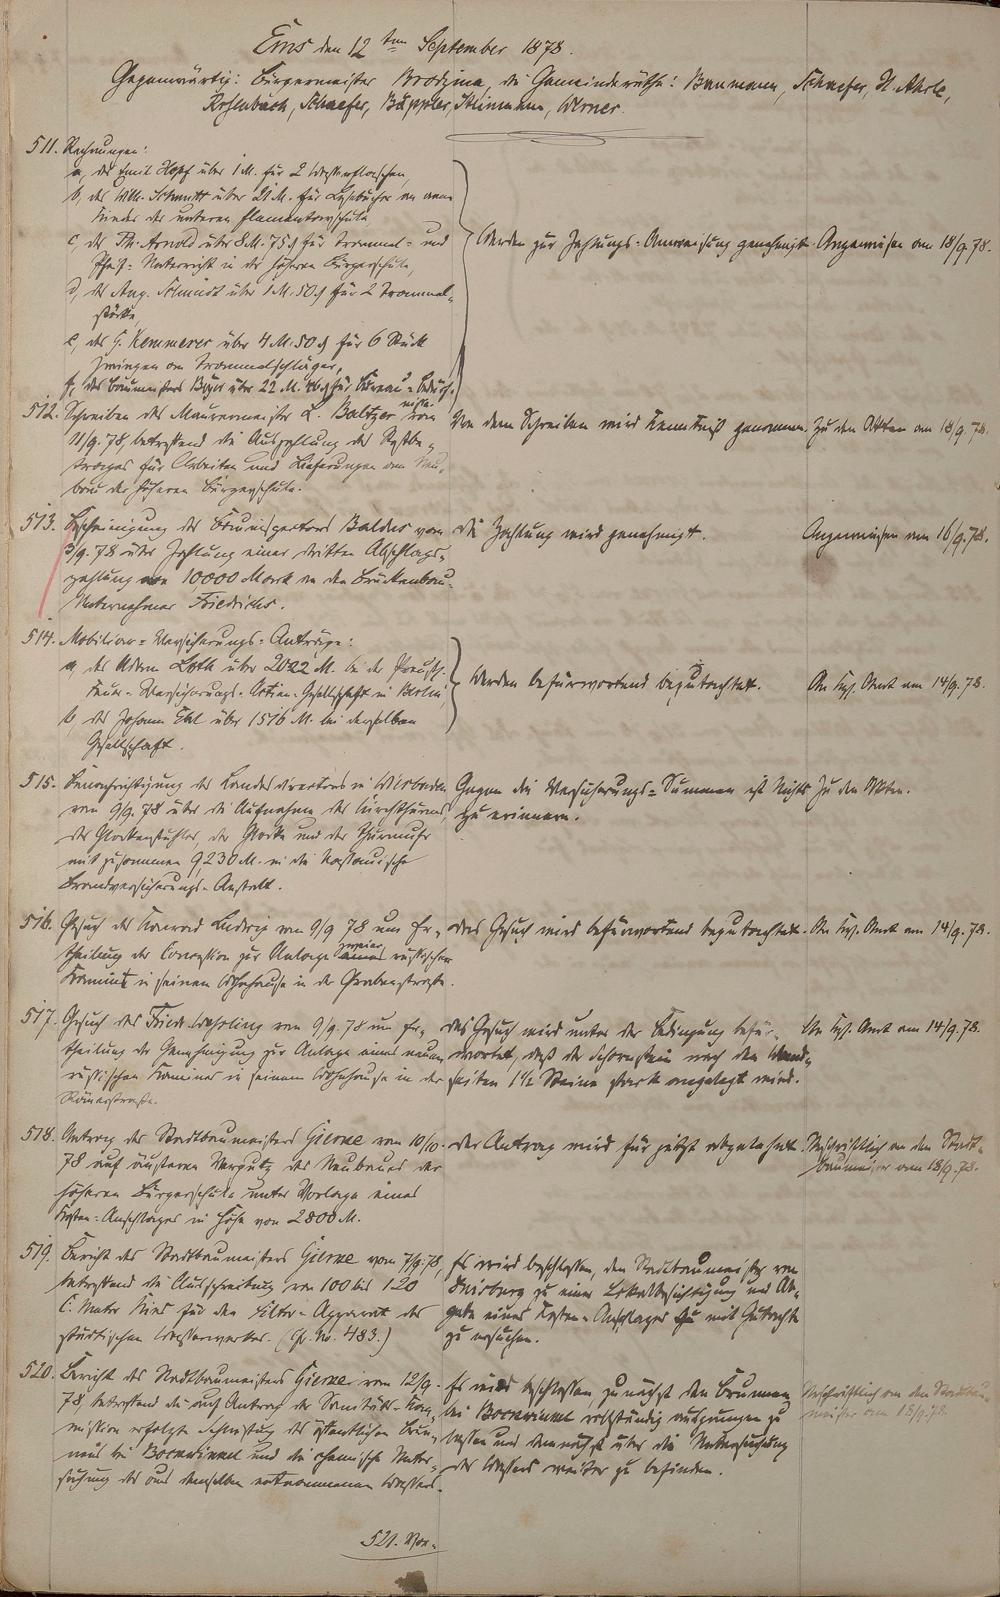 Ems den 12ten September 1878.
Gegenwärtig: Bürgermeister die Gemeinderäthe: Baumann, Schaefer, H. Ahrle,
Rosenbach, Schaefer, Bäppler, Steinmann, Werner.
511. Rechnungen:
a, des Emil Hopf über 1 M. für 2 Wasserflaschen,
b, des Wilh. Schmitt über 21 M. für Lesebücher an arme
Kinder der unteren Elementarschule
c, des Ph. Arnold über 8 M. 75 ₰ für Trommel- und
Pfeif-Unterricht in der höheren Bürgerschule,
d, des Aug. Schmidt über 1 M. 50 ₰ für 2 Trommel-
stöcke,
e, des G. Kemmerer über 4 M. 50 ₰ für 6 Stück
Zwingen an Trommelschläger,
f, des Baumeisters über 22 M. für Bureau-Bedürf-
nisse.
Werden zur Zahlungs-Anweisung genehmigt. Angewiesen am 18/9. 78.
512. Schreiben des Maurermeister L. Baltzer vom
11/9. 78, betreffend die Auszahlung des Restbe-
trages für Arbeiten und Lieferungen am Neu-
bau der höheren Bürgerschule.
Von dem Schreiben wird Kenntniß genommen. Zu den Akten am 18/9. 78.
513. Bescheinigung des Bauinspectors Baldus vom
3/9. 78 über Zahlung einer dritten Abschlags-
zahlung von 10000 Mark an den Brückenbau-
Unternehmer Friedrichs.
Die Zahlung wird genehmigt.
Angewiesen am 16/9. 78.
514. Mobiliar-Versicherungs-Anträge:
a, des Adam Loth über 2022 M. bei der Preuß.
Feuer-Versicherungs-Actien-Gesellschaft in Berlin,
b, des Johann über 1516 M. bei derselben
Gesellschaft.
Werden befürwortend begutachtet.
An Kgl. Amt am 14/9. 78.
515. Benachrichtigung des Landesdirectors in Wiesbaden
vom 9/9. 78 über die Aufnahme des Kirchthurms,
des Glockenstuhles, der Glocke und der Thurmuhr
mit zusammen 9,230 M. in die Nassauische
Brandversicherungs-Anstalt.
Gegen die Versicherungs-Summen ist Nichts
zu erinnern.
Zu den Akten.
516. Gesuch des Konrad Ludwig vom 9/9 78 um Er-
theilung der Concession zur Anlage zweier russischer
Kamine in seinem Wohnhause in der Grabenstraße.
Das Gesuch wird befürwortend begutachtet.
An Kgl. Amt am 14/9. 78.
517. Gesuch des Friedr. vom 9/9. 78 um Er-
theilung der Genehmigung zur Anlage eines neuen
russischen Kamines in seinem Wohnhause in der
Römerstraße.
Das Gesuch wird unter der Bedingung befür-
wortet, daß der Schornstein nach den Wand-
seiten 1½ Steine stark angelegt wird.
An Kgl. Amt am 14/9. 78.
518. Antrag des Stadtbaumeisters Gierne vom 10/9.
78 auf äußeren Verputz des Neubaues der
höheren Bürgerschule unter Vorlage eines
Kosten-Anschlages in Höhe von 2800 M.
Der Antrag wird für jetzt abgelehnt.
Abschriftlich an den Stadt-
baumeister am 18/9. 78.
519. Bericht des Stadtbaumeisters Gierne vom 7/9. 78,
betreffend die Ausschreibung von 100 bis 120
C. Meter Kies für den Filter-Apparat des
städtischen Wasserwerkes. (Pr. No. 483.)
Es wird beschlossen, den Stadtbaumeister von
Duisburg zu einer Lokalbesichtigung und Ab-
gabe eines Kosten-Anschlages mit Gutachten
zu ersuchen.
520. Bericht des Stadtbaumeisters Gierne vom 12/9.
78, betreffend die auf Antrag der Sanitäts-Kom-
mission erfolgte des öffentlichen Brun-
nens bei und die chemische Unter-
suchung des aus demselben entnommenen Wassers.
Es wird beschlossen zunächst den Brunnen
bei vollständig auspumpen zu
lassen und demnächst über die Untersuchung
des Wassers weiter zu befinden.
Abschriftlich an den Stadtbau-
meister am 18/9. 78.
521. Vor-